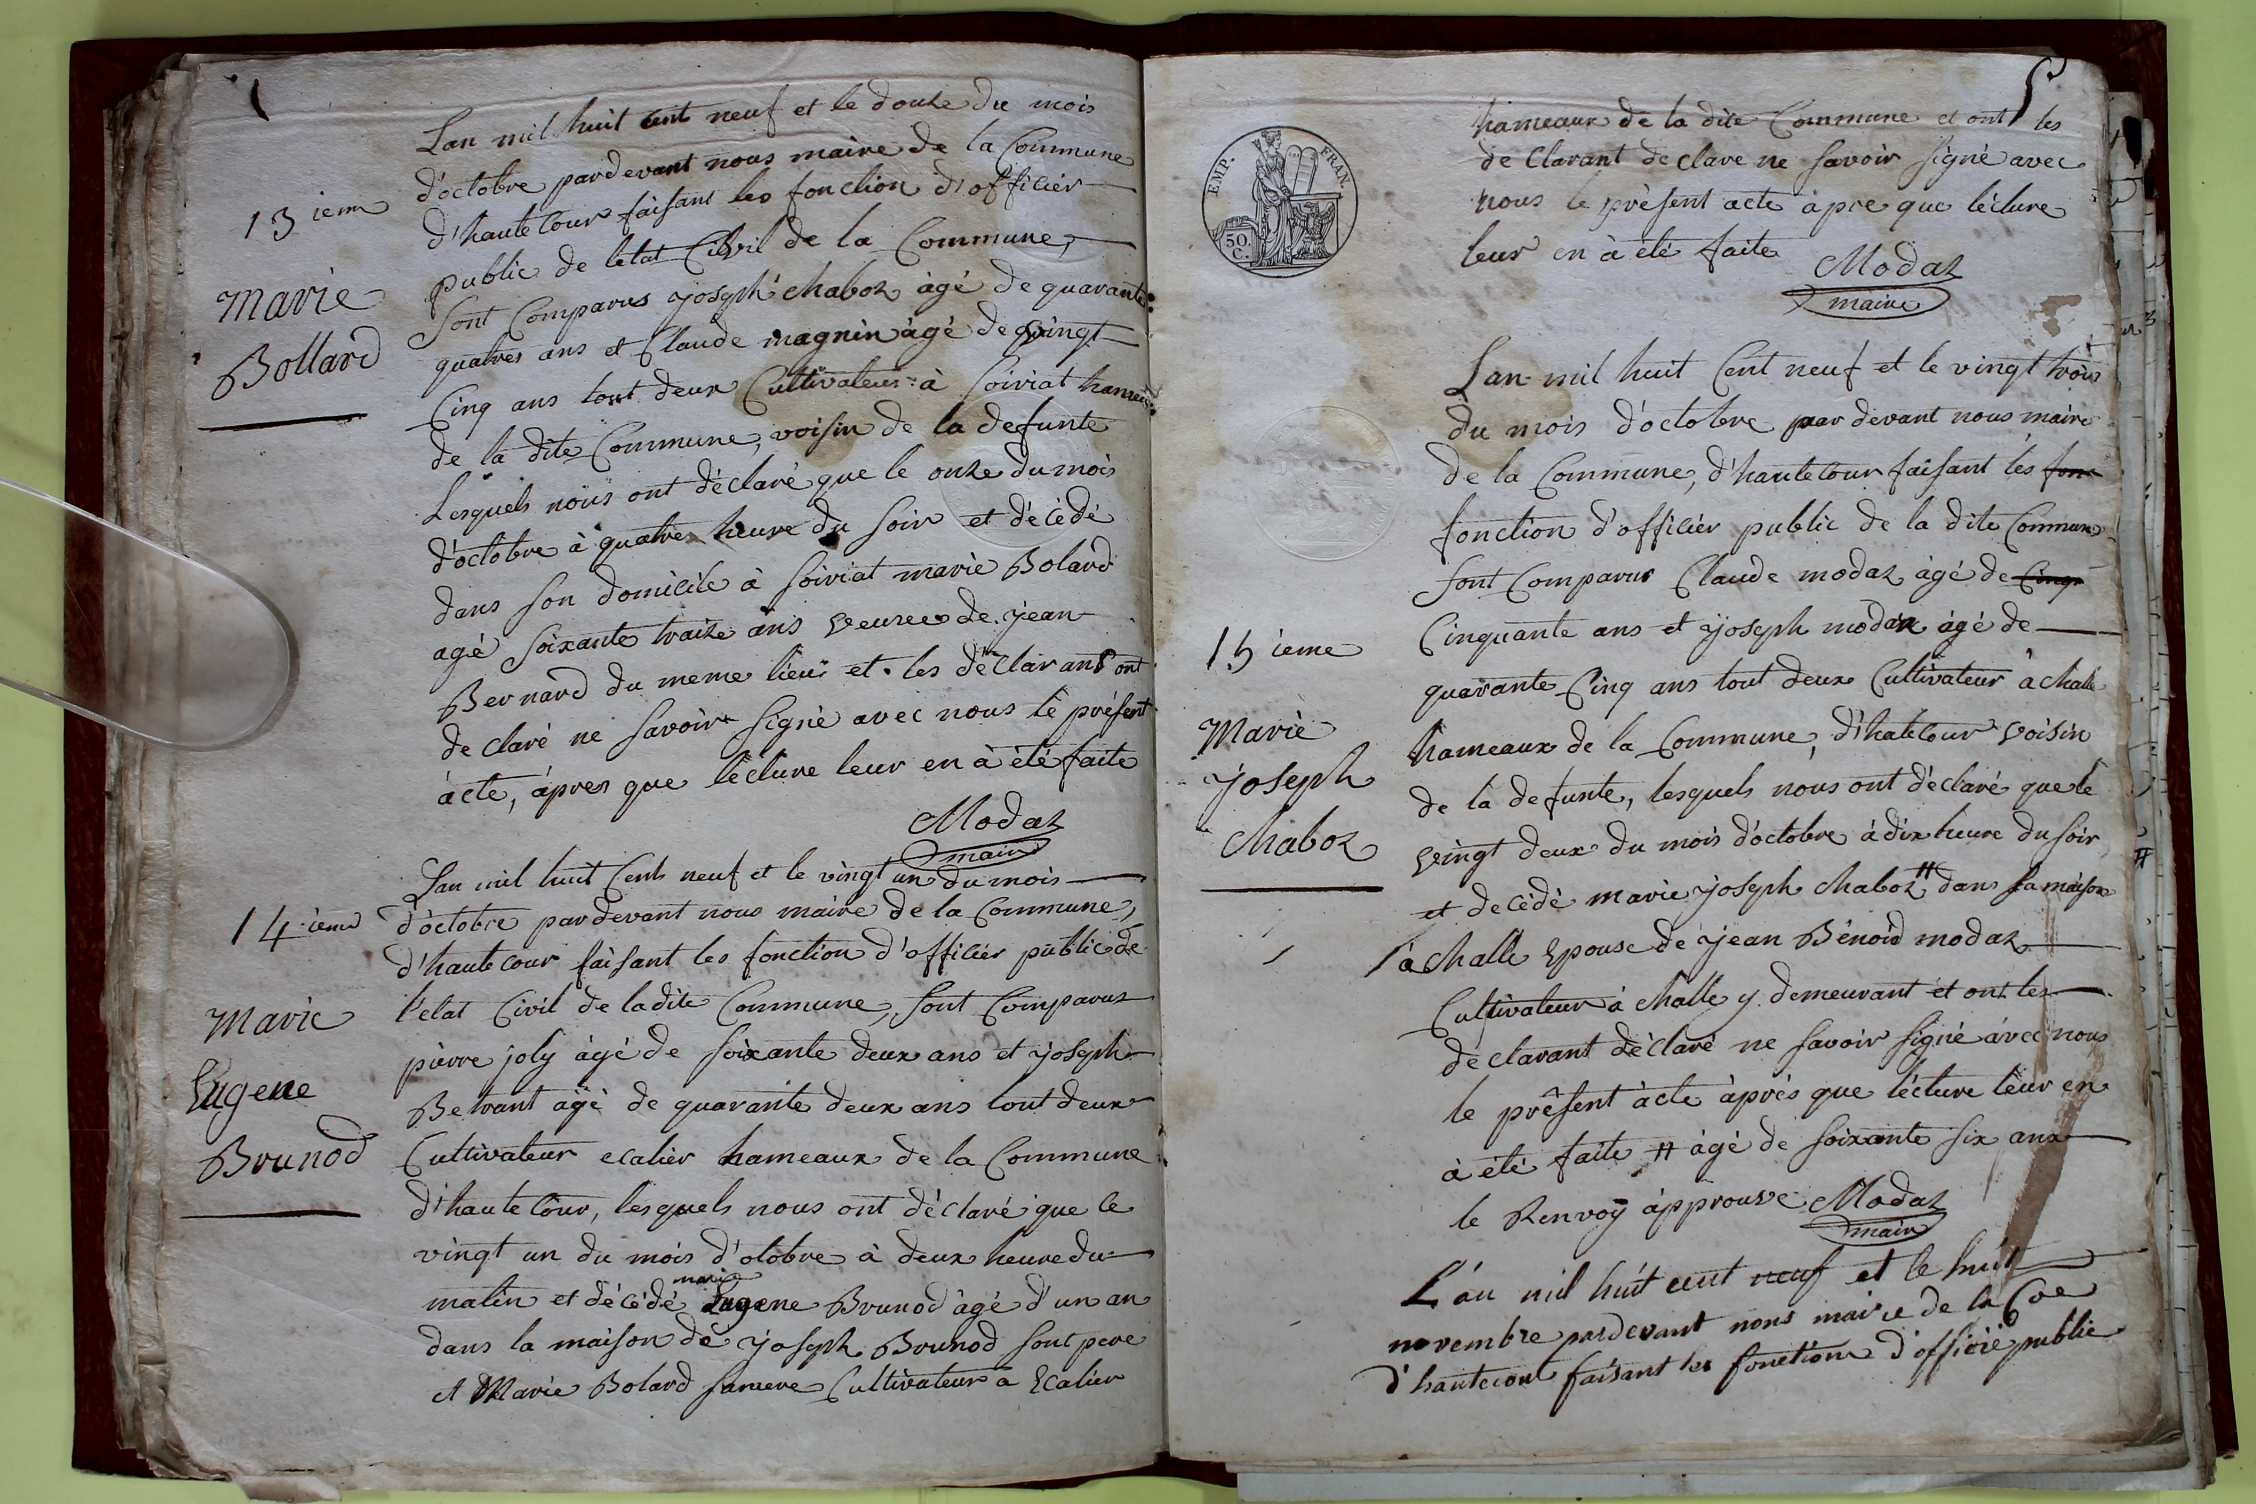 13 ieme
Marie
Bollard
Lan mil huit cent neuf et le douze du mois
d'octobre pardevant nous maire de la Commune
d'hautecour faisant les fonction d'officier
public de létat Civil de la Commune,
sont Comparus joseph chaboz àgé de quarante
quatres ans et Claude magnin àgé de vingt
Cinq ans tout deux Cultivateur à Soiriat hameau
de la dite Commune, voisin de la defunte
Lesquels nous ont déclaré que le onze du mois
d'octobre à quatre heure du soir et décédé
dans son domicile à soiriat marie Bolard
agé soixante traize ans veuree de jean
Bernard du meme lieu et les déclarant ont
de claré ne savoir signé avec nous le présent
àcte, àpres que lécture leur en à été faite
Modaz
maire
14 ieme
Marie
Eugene
Brunod
Lan mil huit Cents neuf et le vingt un du mois
d'octobre pardevant nous maire de la Commune,
d'hautecour faisant les fonction d'officier public de
l'etat Civil de ladite Commune, sont Comparus
pierre joly àgé de soixante deux ans et joseph
Betrant àgé de quarante deux ans tout deux
Cultivateur ecalier hameaux de la Commune
d'hautecour, lesquels nous ont déclaré que le
vingt un du mois d'otobre à deux heure du
matin et décédé marie Eugene Brunod àgé d'un an
dans la maison de joseph Brunod sont pere
et Marie Bolard samere Cultivateur a Ecalier
5
EMP. FRAN.
50.
C.
hameaux de la dite Commune et ont les
de clarant de clare ne savoir signé avec
nous le présent acte àpre que lécture
leur en à été faite
Modaz
maire
15 ieme
Marie
joseph
Chaboz
Lan mil huit Cent neuf et le vingt trois
du mois d'octobre par devant nous maire
de la Commune, d'hautecour faisant les fonc
fonction d'officier public de la dite Commune
sont Comparus Claude modaz àgé de Cinq
Cinquante ans et joseph modaz àgé de
quarante Cinq ans tout deux Cultivateur à challe
hameaux de la Commune, d'hatecour voisin
de la defunte, lesquels nous ont déclaré que le
vingt deux du mois d'octobre à dix heure du soir
et decédé marie joseph chaboz # dans sa maison
à challe Epouse de jean Bénoid modaz
Cultivateur à challe y demeurant et ont les
déclarant déclaré ne savoir signé avec nous
le présent àcte àprès que lécture leur en
à été faite # àgé de soixante six ans
le Renvoÿ àpprouve Modaz
maire
L'an mil huit cent neuf et le huit
novembre pardevant nous maire de la Coe
d'hautecour faisant les fonctions d'officié public